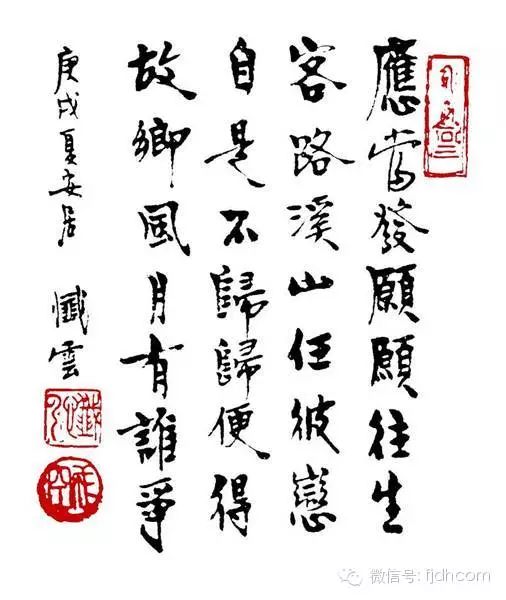 應當發願願往生
客路溪山任彼戀
自是不歸歸便得
故鄉風月有誰爭
庚戌夏安居 懺雲
微信号: fjdhcom